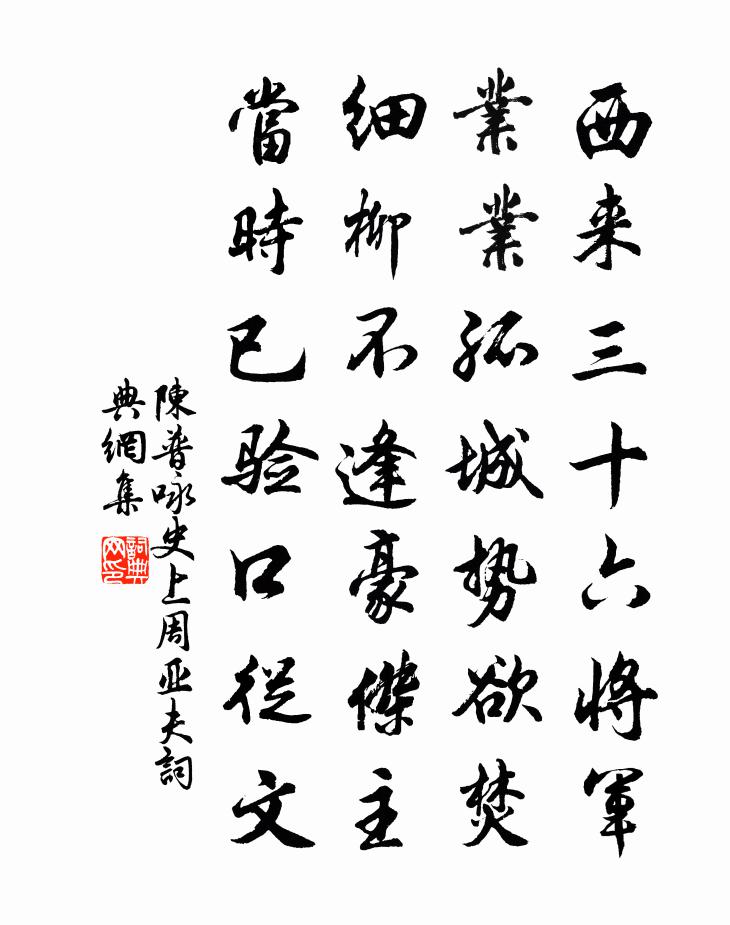 西来三十六將軍
業業孤城势欲焚
細柳不逢豪傑主
當時已验口從文
陳普咏史上周亚夫詞
典網集
詞典
网印